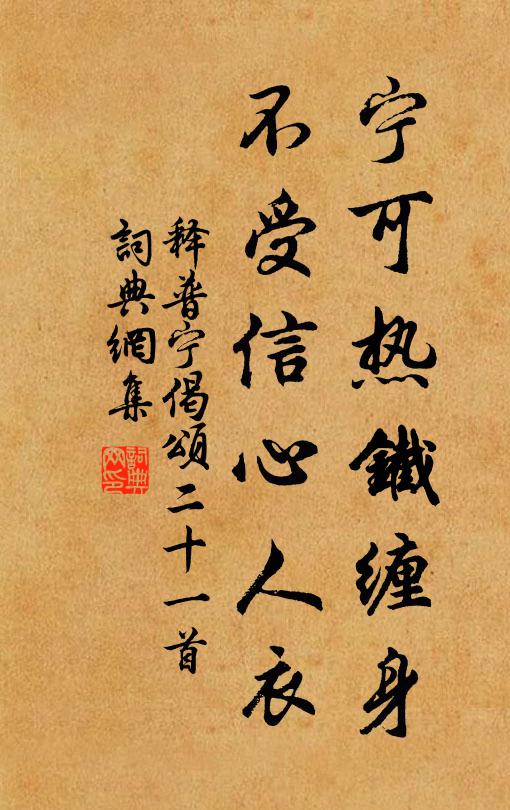 宁可热鐵缠身
不受信心人衣
释普宁偈頌二十一首
詞典網集
詞典網印